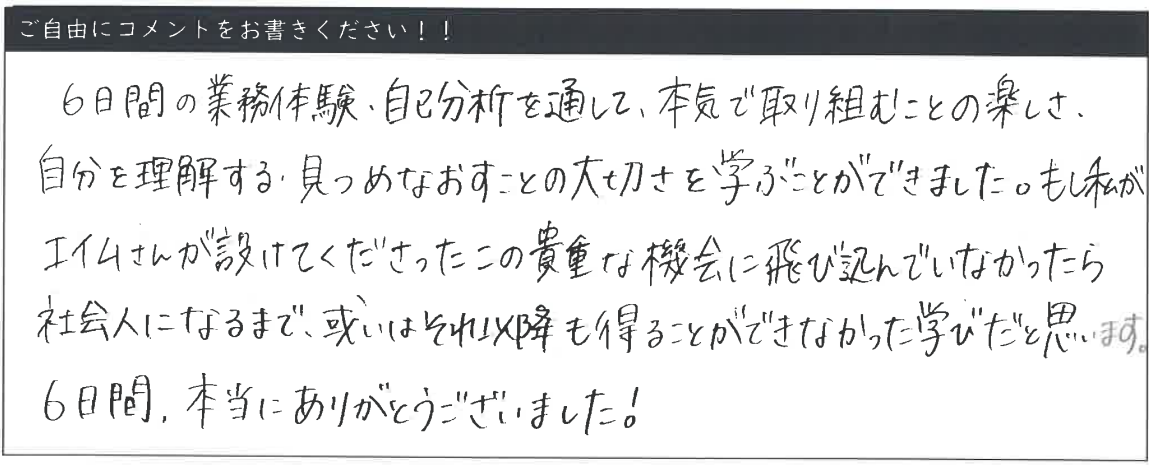 ご自由にコメントをお書きください！！
6日間の業務体験、自己分析を通して、本気で取り組むことの楽しさ、
自分を理解する・見つめなおすことの大切さを学ぶことができました。もし私が
エイムさんが設けてくださったこの貴重な機会に飛び込んでいなかったら
社会人になるまで、或いはそれ以降も得ることができなかった学びだと思います。
6日間、本当にありがとうございました！